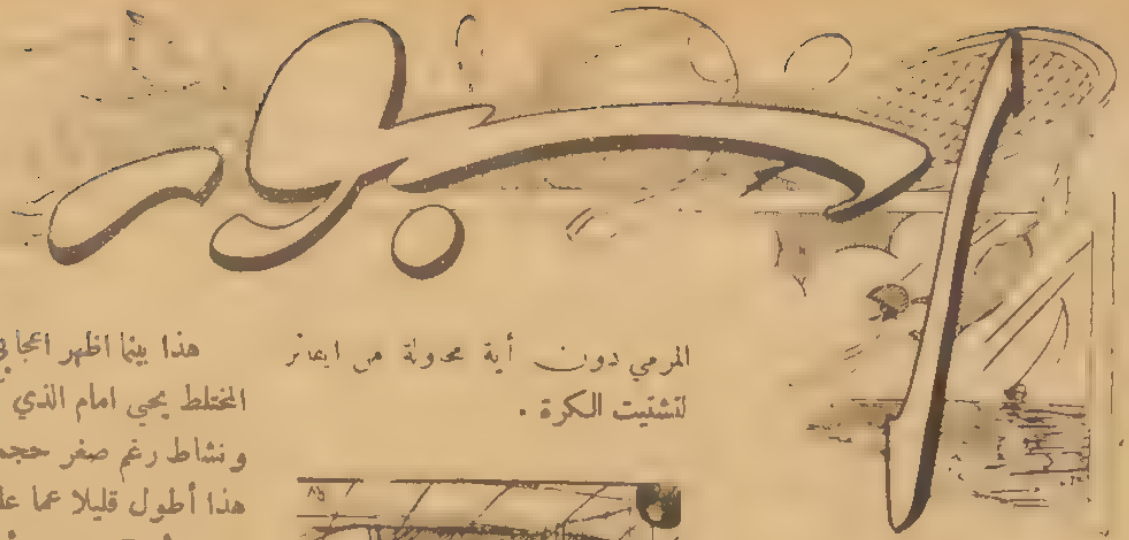 اسبور
المرمي دون أية محاولة من ايفانز
لتشتيت الكرة .
هذا بينما اظهر اعجابي
المختلط يحي امام الذي
ونشاط رغم صغر حجم
هذا أطول قليلا عما